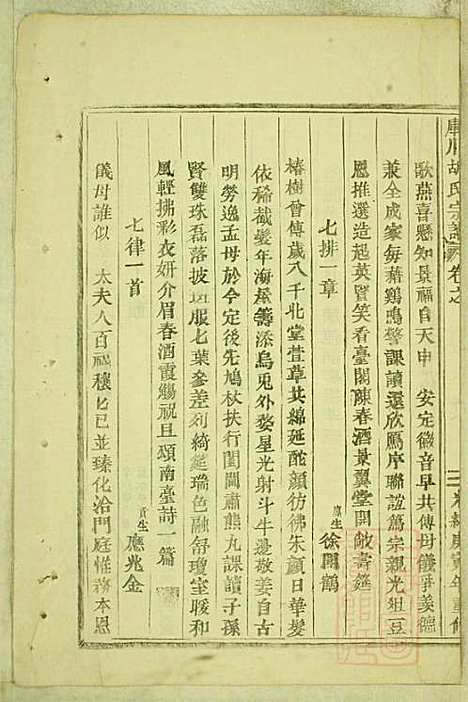 庫川胡氏宗譜 卷之
歌燕喜懸知景福自天申　安定徽音早共傳母儀爭羨德
兼全成家每藉鷄鳴警課讀還欣鴈序聯誼篤宗親光俎豆
恩推選造起英賢笑看臺閣陳春酒景翼堂開敞壽筵
七排一章　庠生徐開鶴
椿樹曾傳歲八千北堂萱草共綿延酡顏彷彿朱顏日華髮
依稀截髮年海屋籌添烏兎外婺星光射斗牛邊敬姜自古
明勞逸孟母於今定後先鳩杖扶行閨閫肅熊丸課讀子孫
賢雙珠磊落披服七葉參差列綺筵瑞色融舒瓊室暖和
風輕拂彩衣妍介眉春酒霞觴祝且頌南臺詩一篇
七律一首　貢生應兆金
儀母誰似　太夫人百福穰匕已並臻化洽門庭惟務本恩